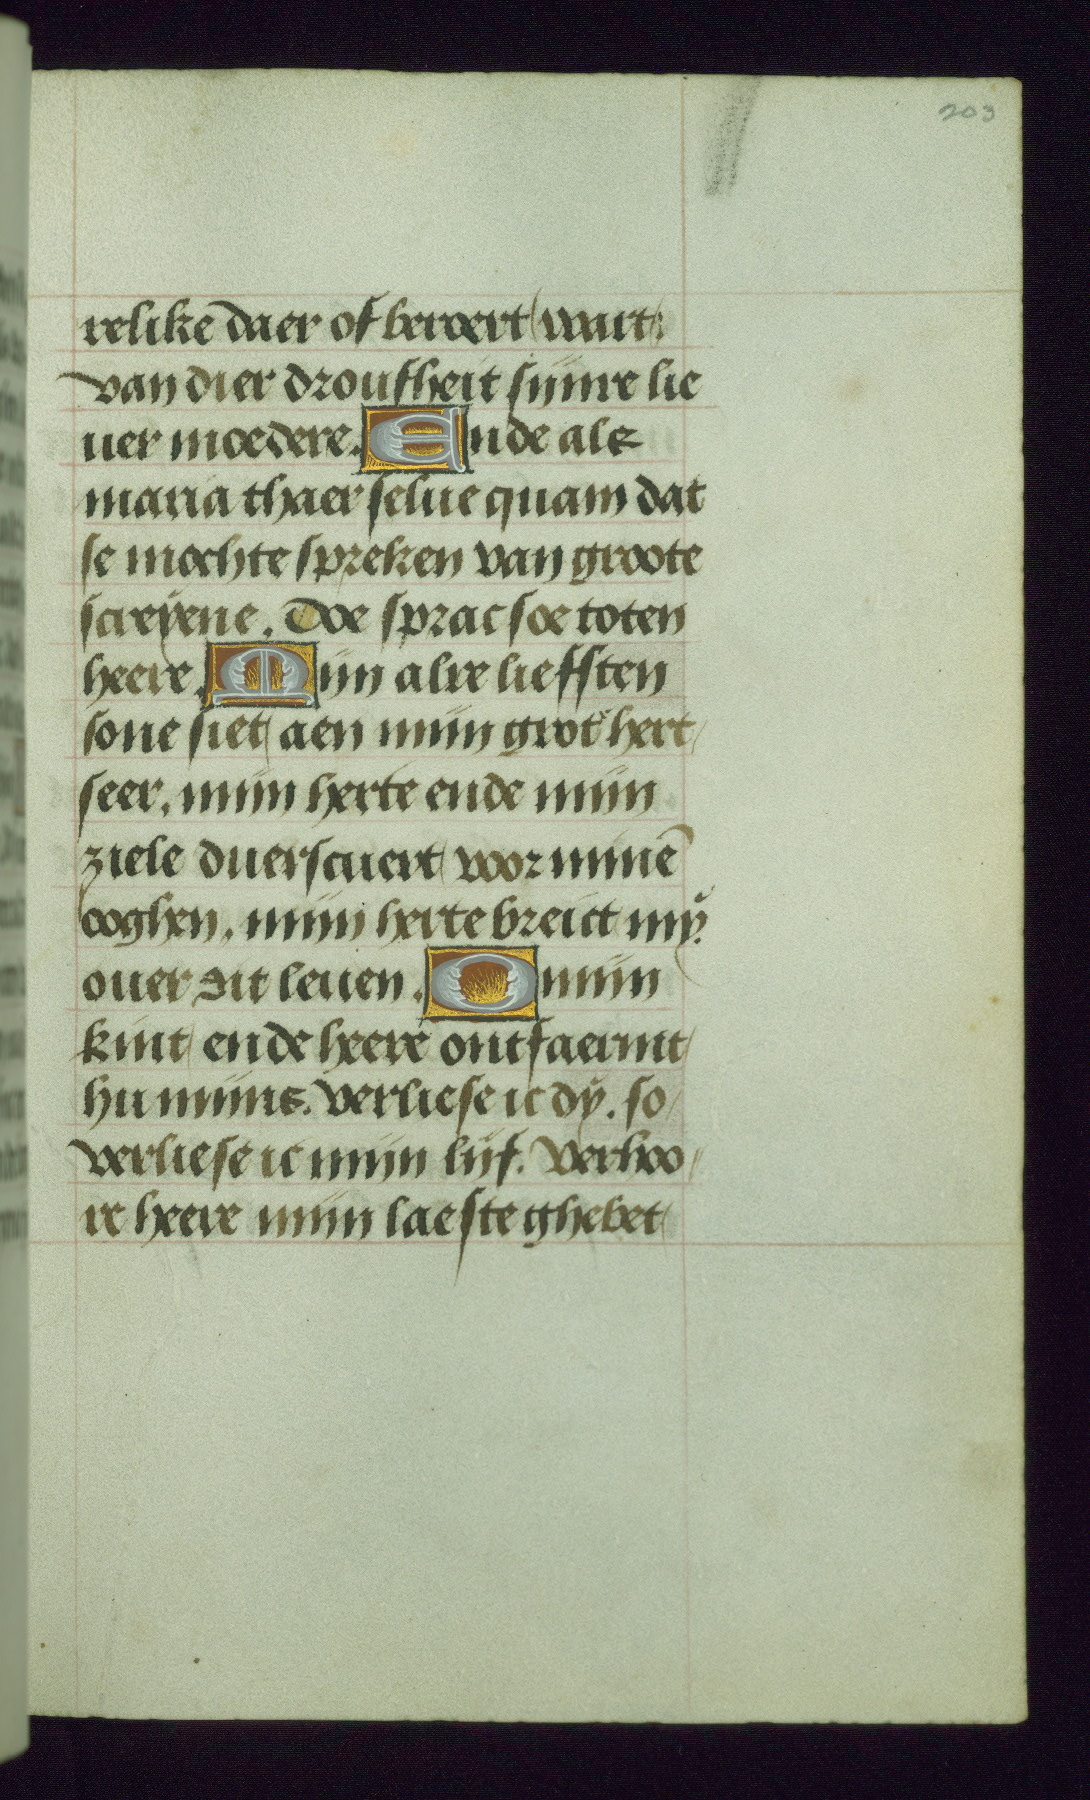 203
relikē daer of beroert wart.
van dier droufheit sijnre lie
uer moedere. Ende als
maria thaer selue quam dat
se mochte spreken van groote
screyene. Doe sprac soe toten
heere. Mijn alre liefsten
sone siet aen mijn grot hert
seer. mijn herte ende mijn
ziele duerscuert voor minē
ooghen. mijn herte breict mij
ouer dit leuen. O mijn
kint ende heere ontfaermt
hu mijns. verliese ic dy. so
verliese ic mijn lijf. Verhoo
re heere mijn laeste ghebet